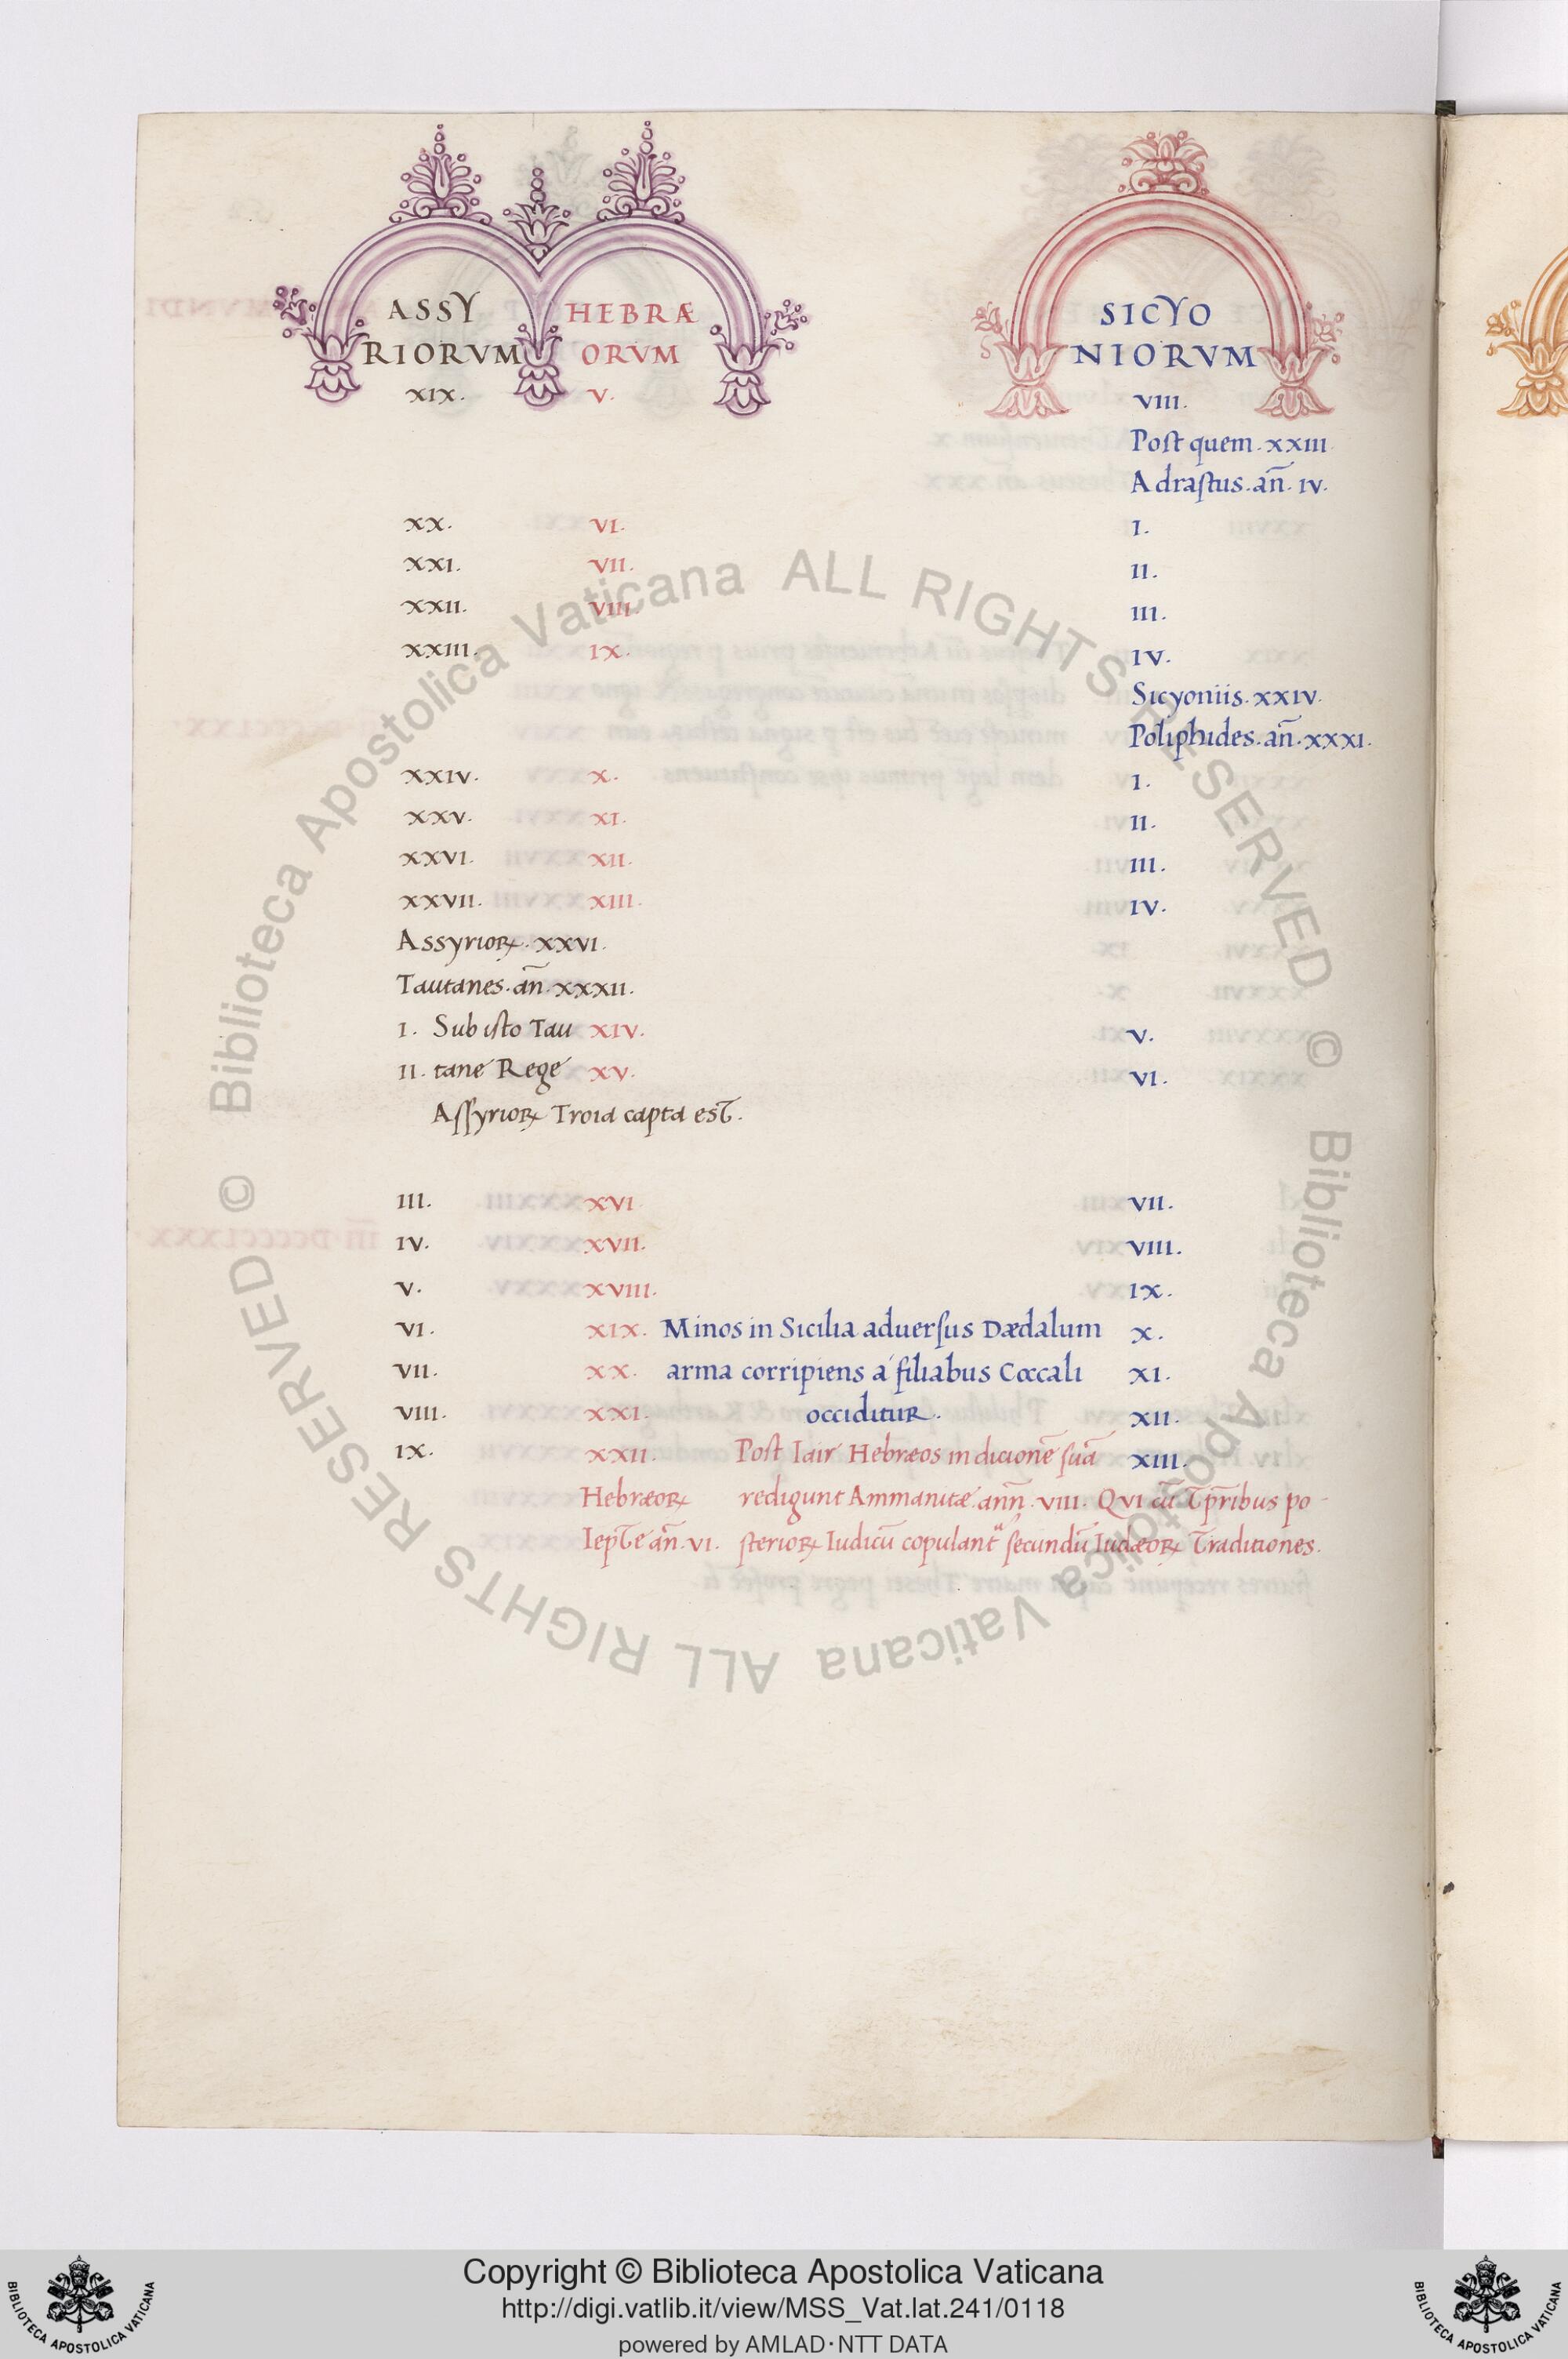 ASSY HEBRÆ SICYO
RIORVM ORVM NIORVM
XIX. V. VIII.
Post quem. XXIII
Adrastus. añ. IV.
XX. VI. I.
XXI. VII. II.
XXII. VIII. III.
XXIII. IX. IV.
Sicyoniis. XXIV.
Poliphides. añ. XXXI.
XXIV. X. I.
XXV. XI. II.
XXVI. XII. III.
XXVII. XIII. IV.
Assyrioꝝ. XXVI.
Tautanes. añ. XXXII.
I. Sub isto Tau XIV. V.
II. tane Rege XV. VI.
Aſſyrioꝝ Troia capta est.
III. XVI. VII.
IV. XVII. VIII.
V. XVIII. IX.
VI. XIX. Minos in Sicilia aduerſus Dædalum X.
VII. XX. arma corripiens á filiabus Cœcali XI.
VIII. XXI. occiditur. XII.
IX. XXII. Post Iair Hebræos in dicionē ſuā XIII.
Hebræoꝝ redigunt Ammanitæ. anñ. VIII. QVI cū Tp̄ribus po-
Iepte añ. VI. sterioꝝ Iudicū copulant᷑ ſecundū Iudæoꝝ Traditiones.
© Biblioteca Apostolica Vaticana ALL RIGHTS RESERVED
© Biblioteca Apostolica Vaticana ALL RIGHTS RESERVED
Copyright © Biblioteca Apostolica Vaticana
http://digi.vatlib.it/view/MSS_Vat.lat.241/0118
powered by AMLAD·NTT DATA
BIBLIOTECA APOSTOLICA VATICANA
BIBLIOTECA APOSTOLICA VATICANA